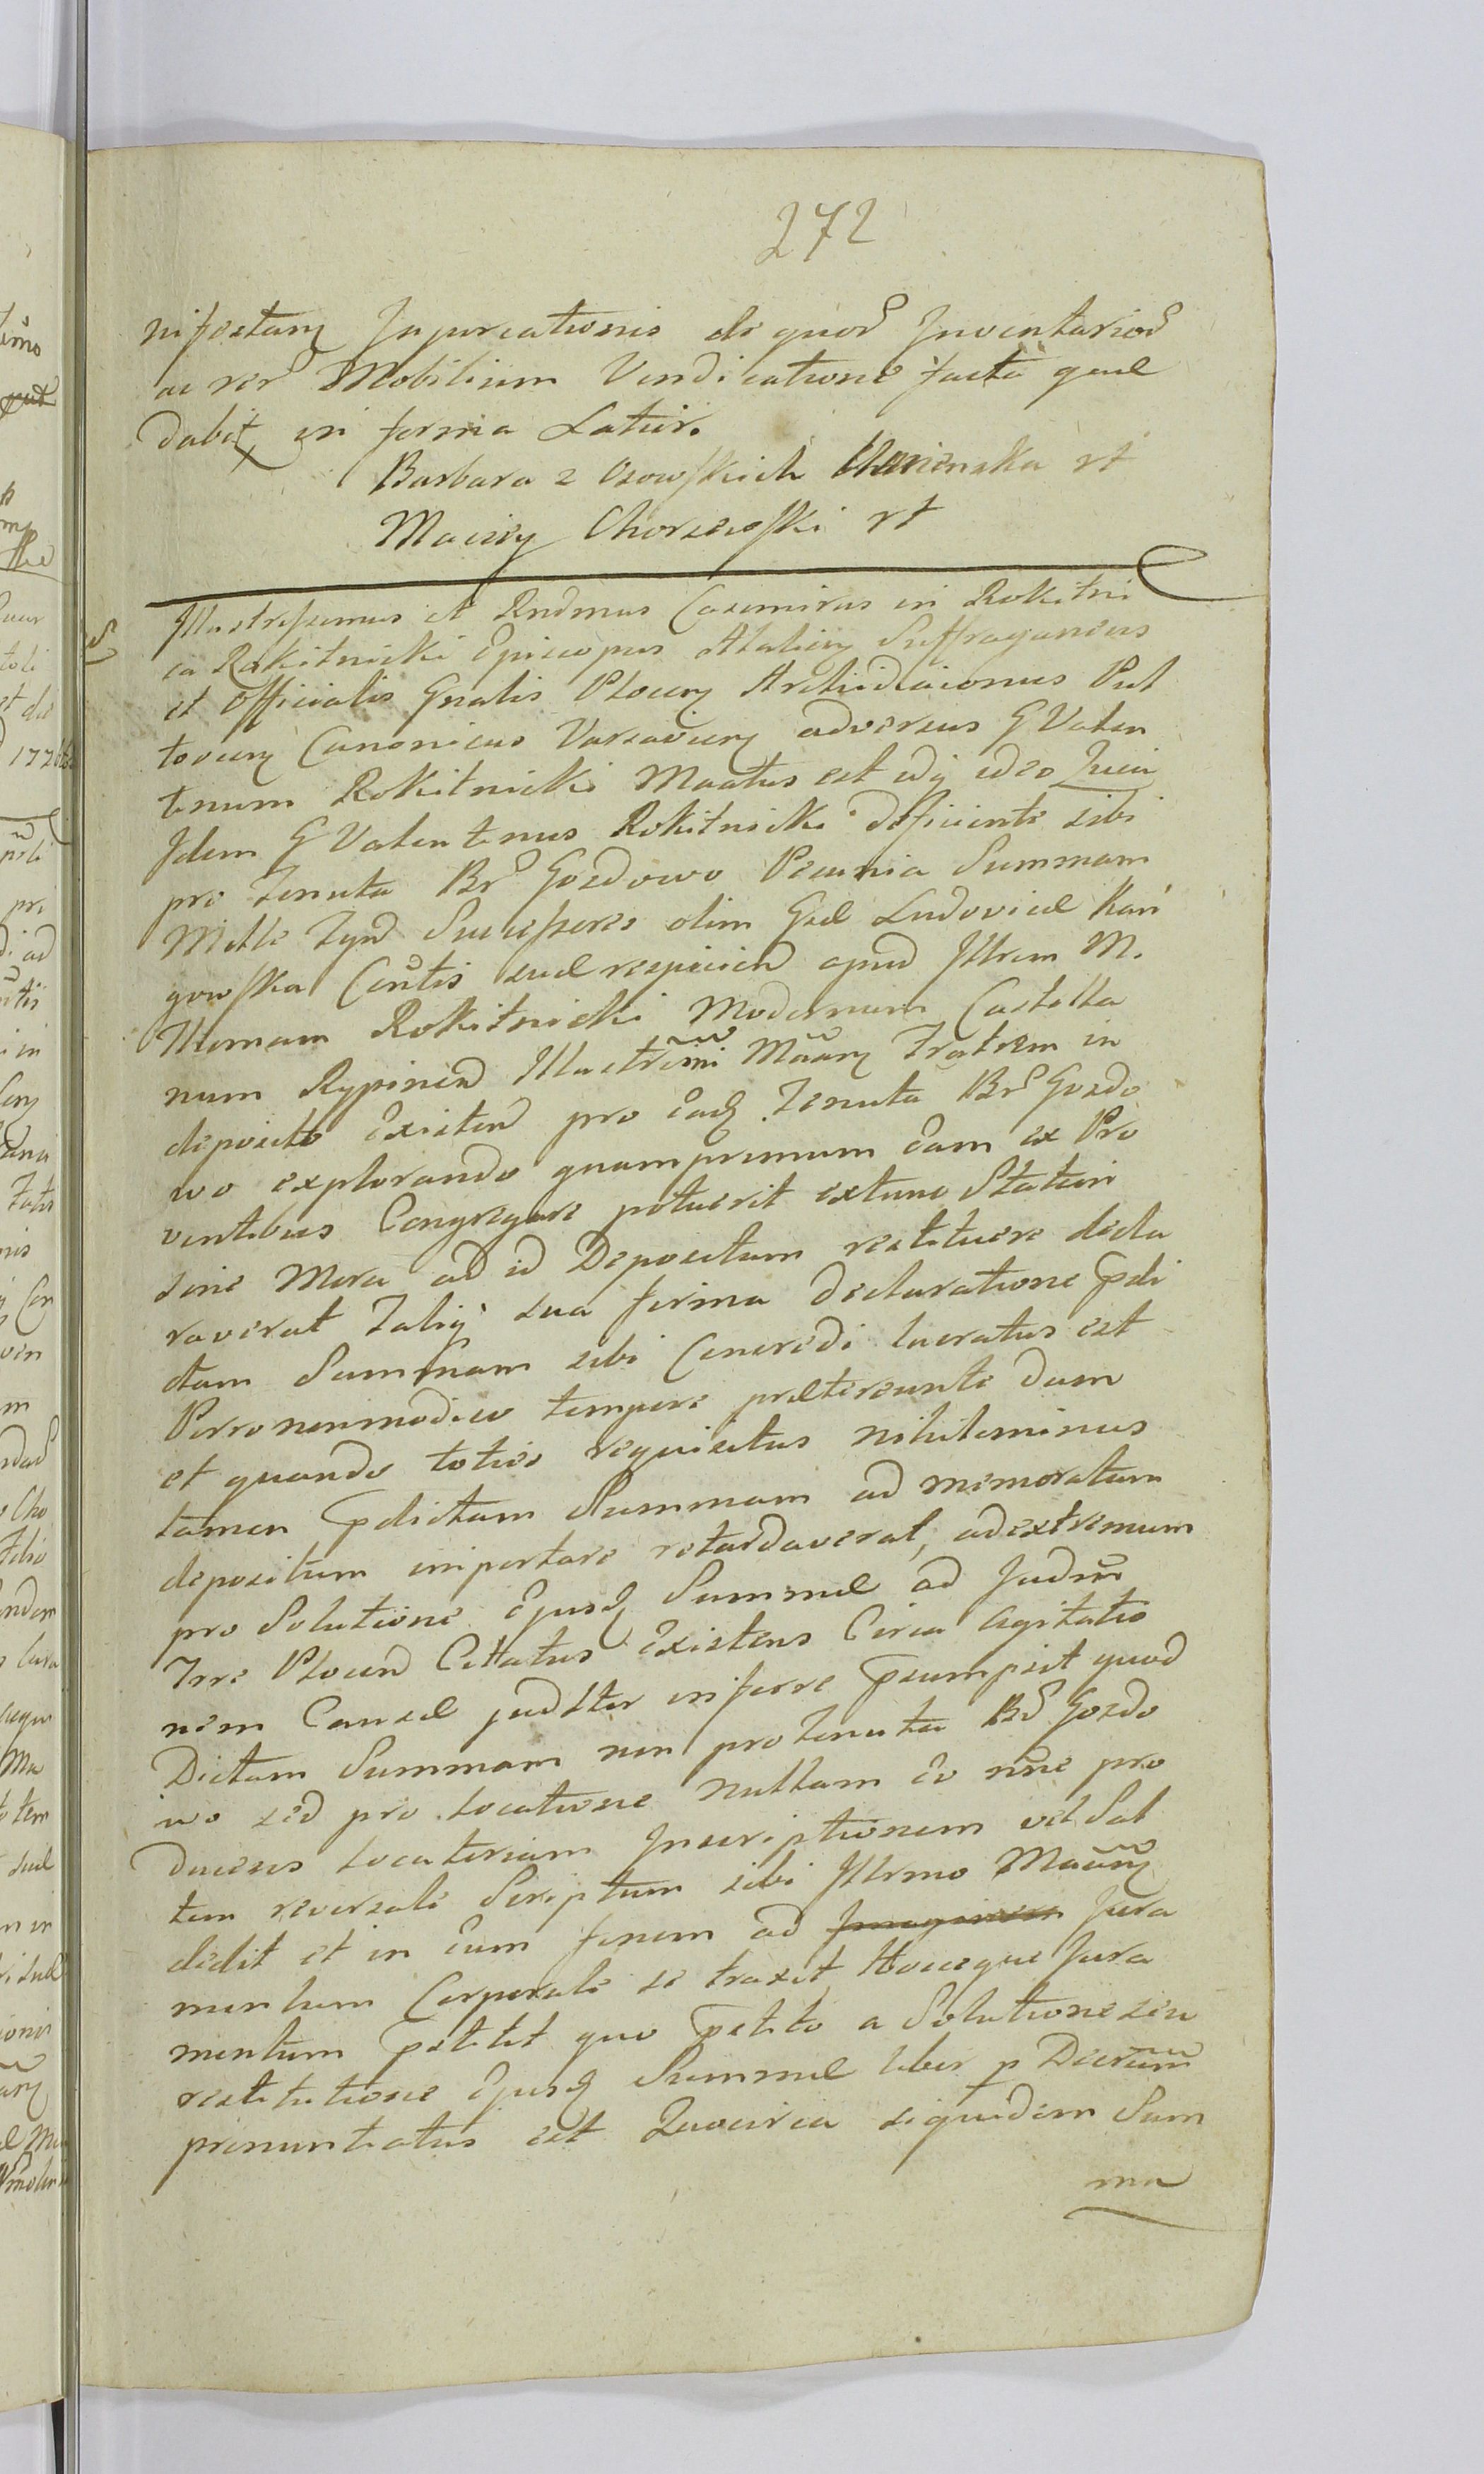 272
nifestanz Inpureationis de quor Inventarior
ac rer Mobilium Vendicatione facta quæ
dabit in forma Latior.
Barbara z Ossowskich mp
Maciey Chorzewski mp
Illustrissimus et Rndmus Casimirus in Rokitni
ca Rokitnicki Episcopus Suffraganeus
et Officialis Gnalis Plocen Archidiaconus Pul
toven Canonicus Varsavien adversus G Valen
tinum Rokitnicki Mnatus est idq ideo Quia
Idem G Valentinus Rokitnicki deficiente sibi
pro Tenuta Br Gozdowo Pecunia Summam
Mille Tynf Successores olim Gsæ Ludovicæ Kań
gowska Contis suæ respicien apud Illrem M.
Thomam Rokitnicki Modernum Castella
num Rypinen Illustrmi Maanz Fratrem in
deposito Existen pro Eadq Tenuta Br Gozdo
wo explorando quamprimum Eam ex Pro
ventibus Congregare potuerit extunc Statim
sine Mora ad id Depositum restituere decla
raverat Taliq sua firma declaratione pdi
ctam Summam sibi Concredi lucratus est
Verro nonmodico tempore prætereunte dum
et quando toties requisitus nihilominus
tamen pdictam Summam ad memoratum
depositum importare retardaverat, ad extremum
pro Solutione Ejusdq Summæ ad Judm
Trre Plocen Citatus Existens Circa Agitatio
nem Causæ judltr inferre psumpsit quod
Dictam Summam non pro Tenuta Br Gozdo
wo sed pro locatione nullam Eo nne pro
ducens locatoriam Inscriptionem vel Sal
tem reversale Scriptum sibi Illrmo Maanz
dedit et in Eum finem ad Jura
mentum Corporale se traxit Hocceque Jura
mentum pstitit quo pstito a Solutione seu
restitutione Ejusdq Summæ liber p Decrum
pronuntiatus est Quocirca siquidem Sum
ma